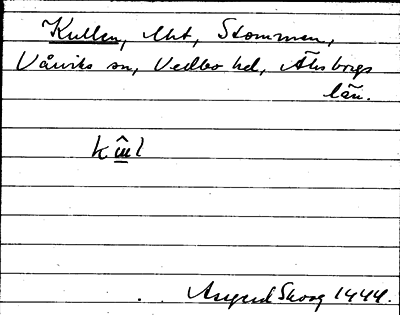 Kullen, lht, Stommen,
Vårviks sn, Vedbo hd, Älvsborgs
län.
Astrid Skoog 1944.